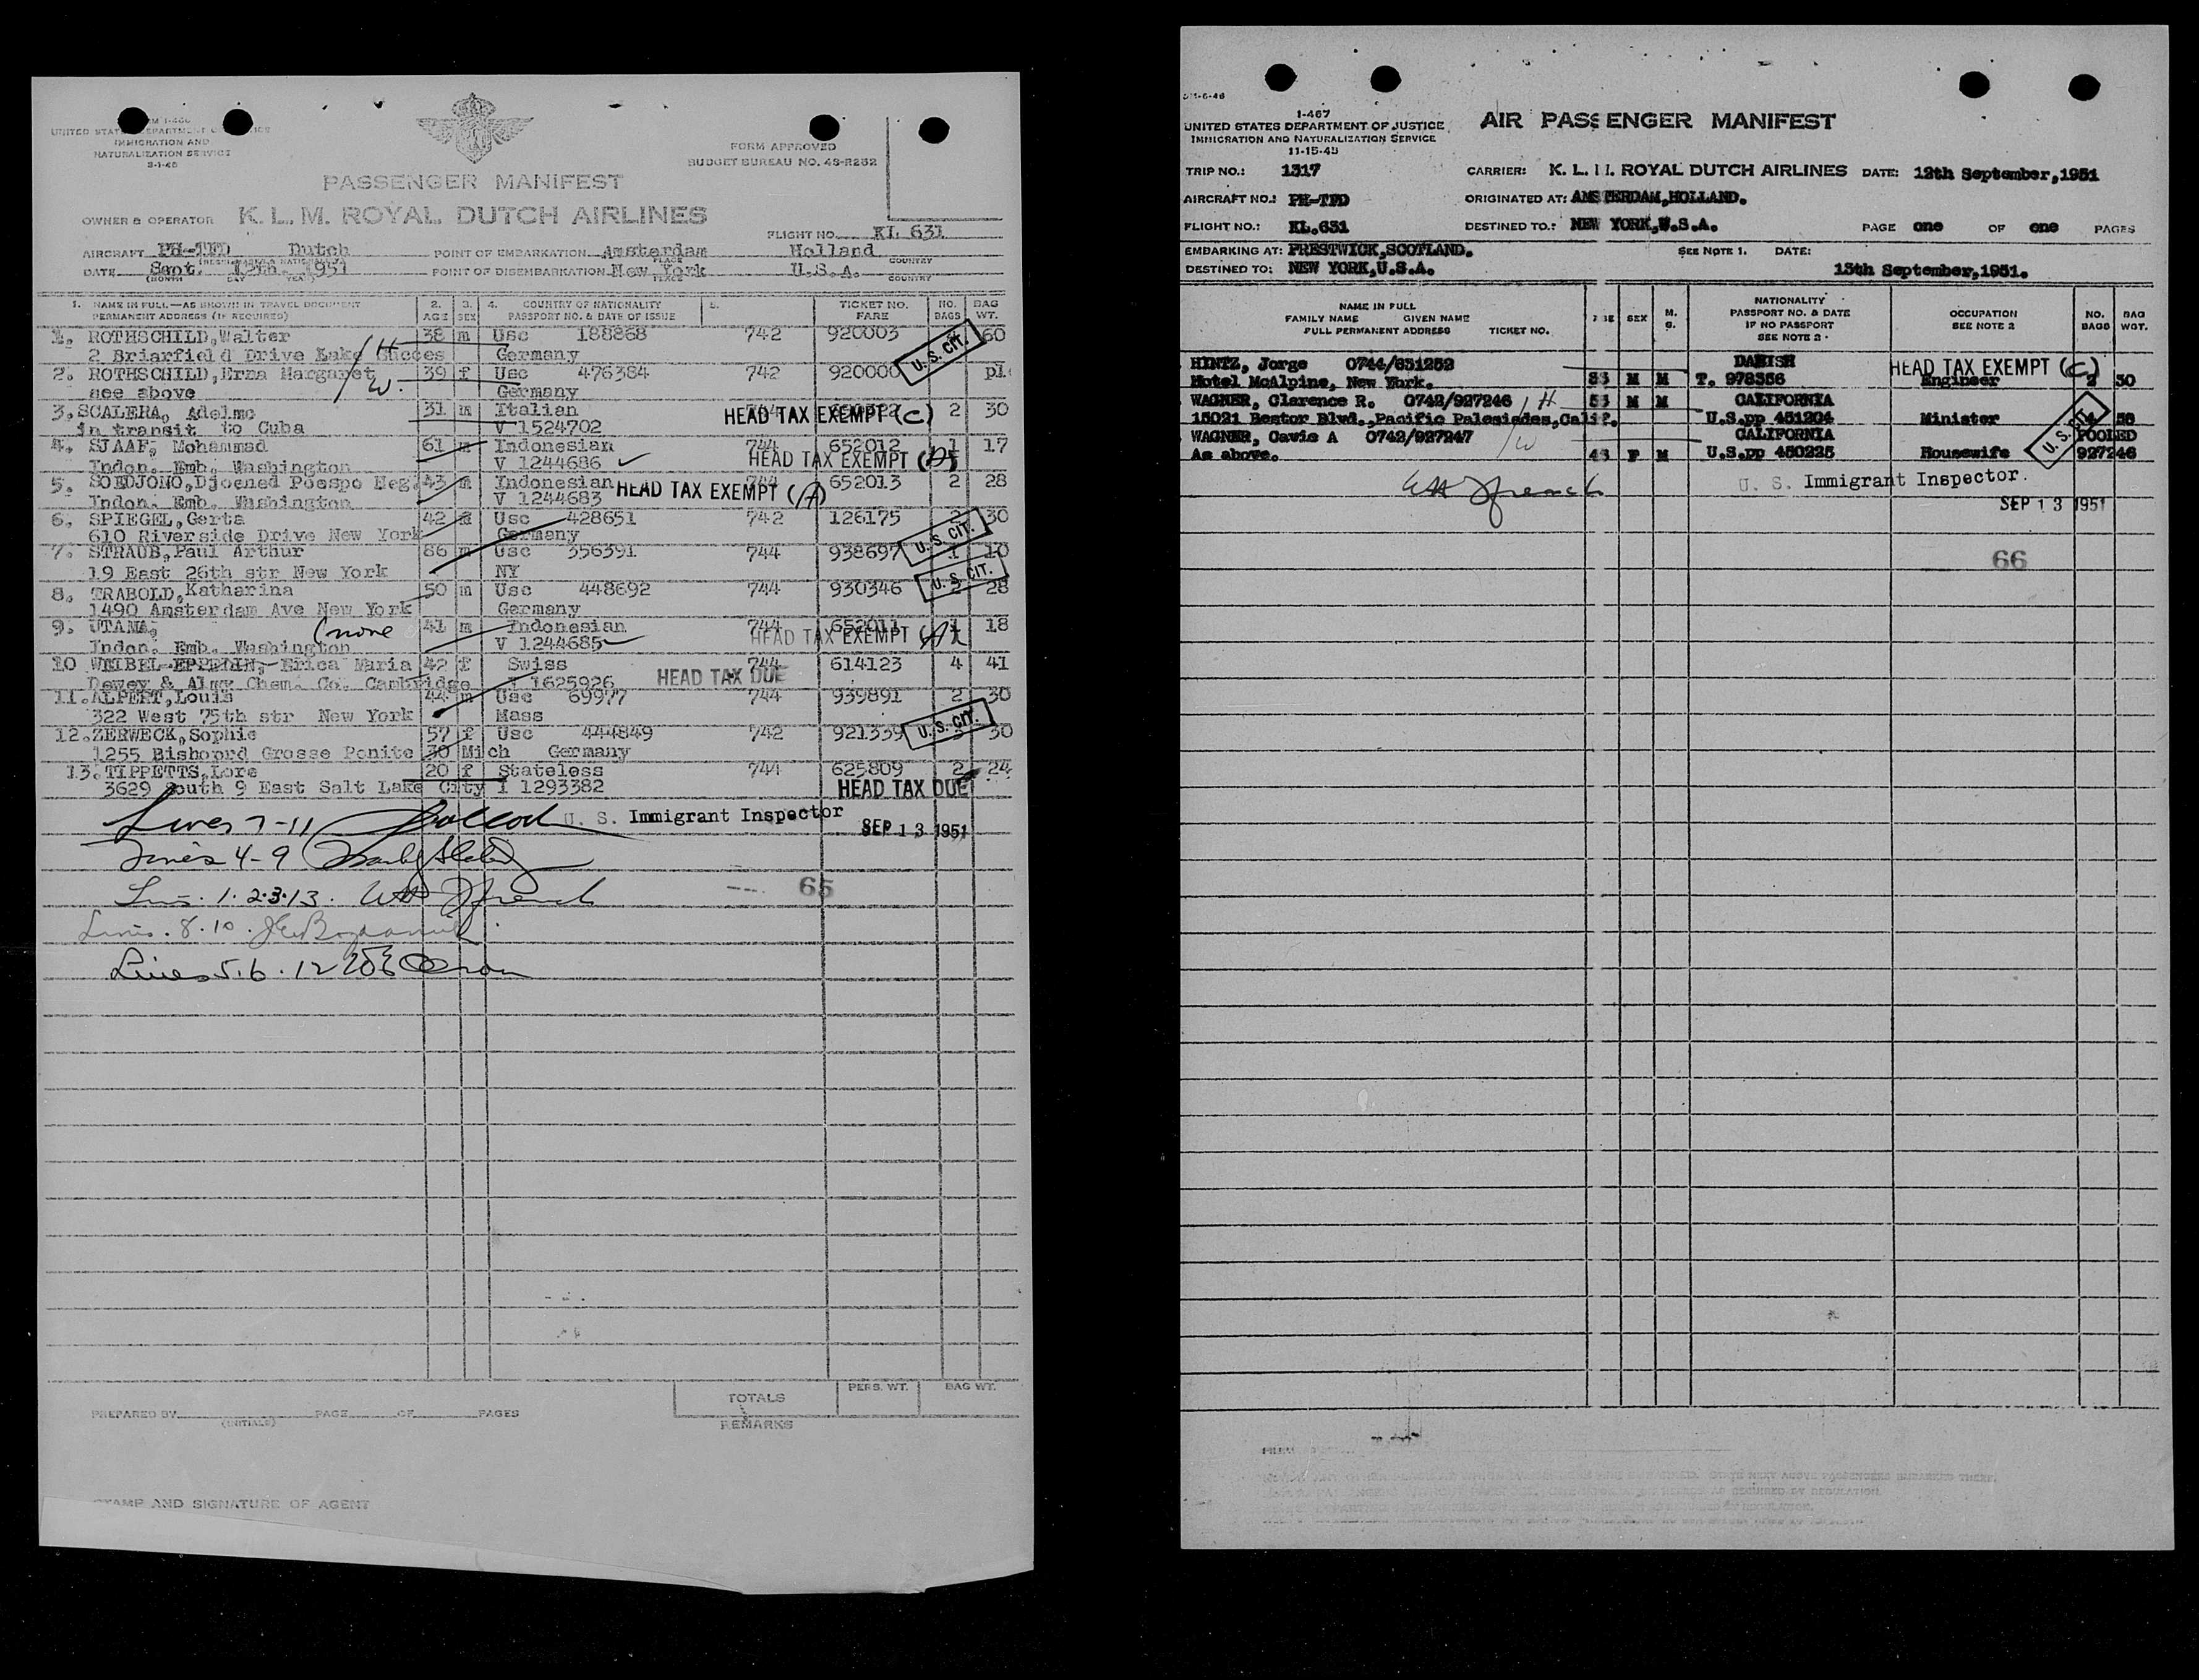 FORM APPROVED
BUDGET BUREAU NO. 43-R252
IMMIGRATION AND
NATURALIZATION SERVICE
PASSENGER MANIFEST
OWNER & OPERATOR K. L. M. ROYAL DUTCH AIRLINES
FLIGHT NO. KL 631
AIRCRAFT PH-TFD Dutch POINT OF EMBARKATION Amsterdam Holland
DATE Sept. 12th. 1951 POINT OF DISEMBARKATION New York U.S.A.
1. NAME IN FULL—AS SHOWN IN TRAVEL DOCUMENT 2. 3. 4. COUNTRY OF NATIONALITY 5. TICKET NO. NO. BAG
PERMANENT ADDRESS (IF REQUIRED) AGE SEX PASSPORT NO. & DATE OF ISSUE FARE BAGS WT.
1. ROTHSCHILD,Walter 38 m Usc 188868 742 920003 60
2 Briarfield Drive Lake Succes H Germany U. S. CIT.
2. ROTHSCHILD,Erna Margaret 39 f Usc 476384 742 920000 pl
see above W. Germany
3. SCALERA, Adelmo 31 m Italian HEAD TAX EXEMPT (C) 2 30
in transit to Cuba V 1524702
4. SJAAF, Mohammad 61 m Indonesian 744 652012 1 17
Indon. Emb. Washington V 1244686 HEAD TAX EXEMPT (A)
5. SOEDJONO,Djoened Poespo Neg. 43 m Indonesian 652013 2 28
Indon. Emb. Washington V 1244683 HEAD TAX EXEMPT (A)
6. SPIEGEL,Gerta 42 Usc 428651 742 126175 2 30
610 Riverside Drive New York Germany U. S. CIT.
7. STRAUB,Paul Arthur 86 m Usc 356391 744 938697 1 10
19 East 26th str New York NY U. S. CIT.
8. TRABOLD,Katharina 50 m Usc 448692 744 930346 28
1490 Amsterdam Ave New York Germany
9. UTAMA, (none 41 m Indonesian 744 652011 1 18
Indon. Emb. Washington V 1244685 HEAD TAX EXEMPT (A)
10 WEIBEL-EPPRLIN, Erica Maria 42 f Swiss 744 614123 4 41
Dewey & Almy Chem. Co. Cambridge 1625926 HEAD TAX DUE
11. ALPERT,Louis 44 m Usc 69977 744 939891 2 30
322 West 75th str New York Mass U. S. CIT.
12. ZERWECK,Sophie 57 f Usc 444849 742 921339 3 30
1255 Bishoprd Grosse Ponite 30 Mich Germany
13. TIPPETTS,Lore 20 f Stateless 744 625809 2 24
3629 south 9 East Salt Lake City I 1293382 HEAD TAX DUE
Lines 7-11
U. S. Immigrant Inspector SEP 13 1951
Lines 4-9
Lines 1.2.3.13. French
65
Lines. 8.10.
Lines 5.6.12
TOTALS PERS. WT. BAG WT.
PREPARED BY (INITIALS) PAGE OF PAGES
REMARKS
STAMP AND SIGNATURE OF AGENT
I-467
UNITED STATES DEPARTMENT OF JUSTICE
IMMIGRATION AND NATURALIZATION SERVICE
11-15-45
AIR PASSENGER MANIFEST
TRIP NO.: 1317 CARRIER: K. L. M. ROYAL DUTCH AIRLINES DATE: 12th September,1951
AIRCRAFT NO.: PH-TFD ORIGINATED AT: AMSTERDAM,HOLLAND.
FLIGHT NO.: KL.631 DESTINED TO.: NEW YORK,U.S.A. PAGE one OF one PAGES
EMBARKING AT: PRESTWICK,SCOTLAND. SEE NOTE 1. DATE:
DESTINED TO: NEW YORK,U.S.A. 13th September,1951.
NAME IN FULL
FAMILY NAME GIVEN NAME
FULL PERMANENT ADDRESS TICKET NO.
AGE SEX M. S.
NATIONALITY
PASSPORT NO. & DATE
IF NO PASSPORT
SEE NOTE 2
OCCUPATION
SEE NOTE 2
NO. BAGS
BAG WGT.
HINTZ, Jorge 0744/631252 DANISH HEAD TAX EXEMPT (C)
Hotel McAlpine, New York. 33 M M T. 978356 Engineer 2 30
WAGNER, Clarence R. 0742/927246 H 53 M M CALIFORNIA
15021 Bestor Blvd.,Pacific Palesiades,Calif. U.S.pp 451204 Minister U. S. CIT.
WAGNER, Cawie A 0742/927247 W CALIFORNIA POOLED
As above. 43 F M U.S.pp 450225 Housewife 927246
French
U. S. Immigrant Inspector.
SEP 13 1951
66